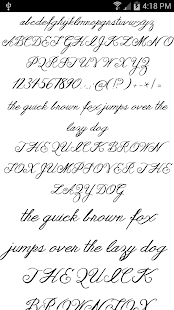 4:18 PM
abcdefghijklmnopqrstuvwxyz
ABCDEFGHIJKLMNO
PQRSTUVWXYZ
1234567890.,:(!?)+-*/=
the quick brown fox jumps over the
lazy dog
THE QUICK BROWN
FOX JUMPS OVER THE
LAZY DOG
the quick brown fox
jumps over the lazy dog
THE QUICK
BROWN FOX